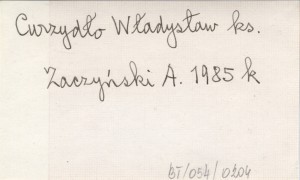 Curzydło Władysław ks.
Zaczyński A. 1985 k
BT/054/0204